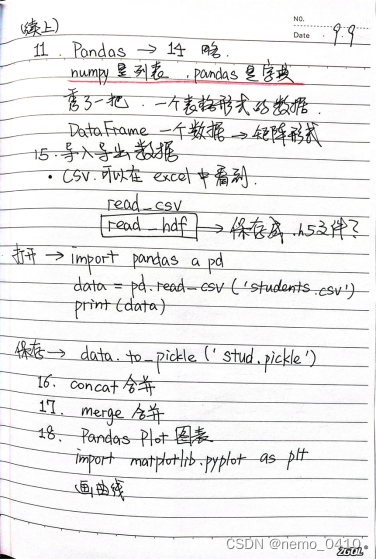 NO.
Date 9.9
(续上)
11. Pandas → 14 略.
numpy 是列表 , pandas 是字典
看了一把. 一个表格形式的数据.
DataFrame 一个数据 → 矩阵形式
15. 导入导出数据
• CSV. 可以在 excel 中看到.
read_csv
read_hdf → 保存成 .h5文件?
打开 → import pandas a pd
data = pd.read_csv ('students.csv')
print (data)
保存 → data.to_pickle ('stud.pickle')
16. concat 合并
17. merge 合并
18. Pandas Plot 图表
import matplotlib.pyplot as plt
画曲线
CSDN @nemo_0410